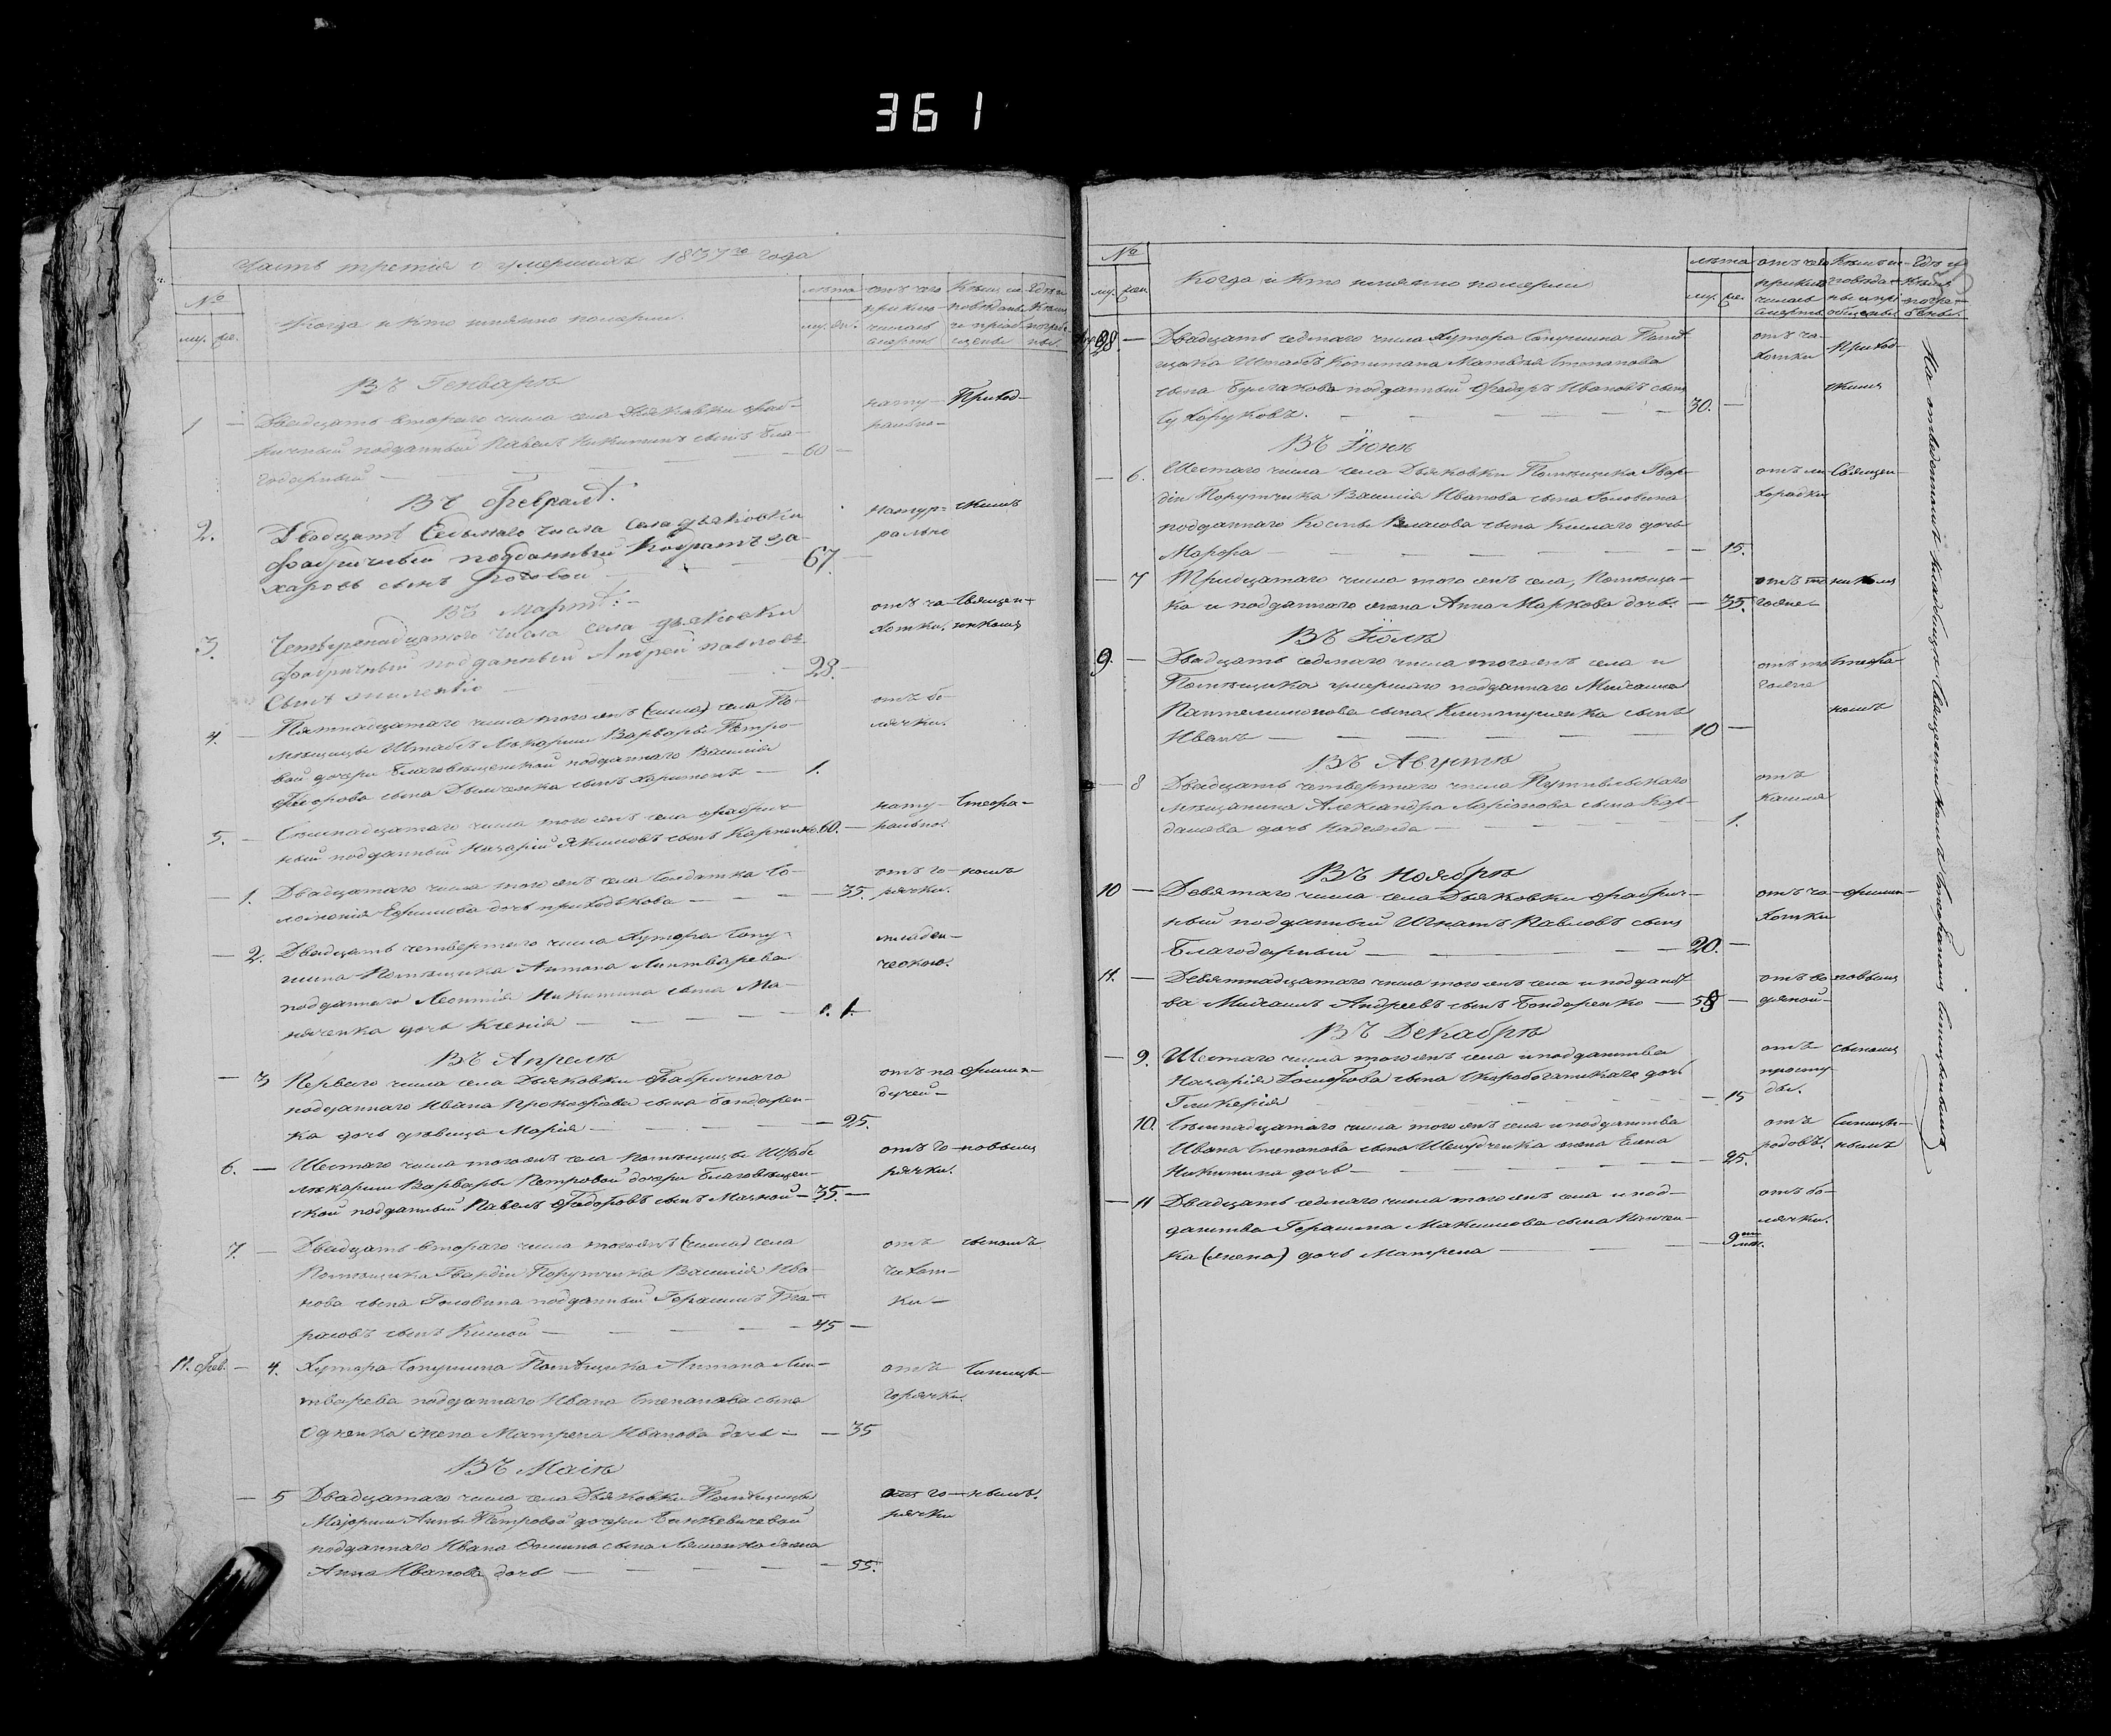 361
Часть третія о умершихъ 1837го года
№
му. же.
Когда и кто имянно померли.
лѣта
му. же.
отъ чего
приклю-
чилась
смерть
Кѣмъ ис-
повѣданы
и пріоб-
щены
Гдѣ и
Кѣмъ
погре-
бены.
Въ Генварѣ
1 — Двадцать втораго числа села Дьяковки фаб-
ричный подданный Павелъ Никитинъ сынъ Бла-
годарный — 60 —
нату-
рально-
Приход-
Въ Февралѣ.
2. Двадцать Седьмаго числа села Дьяковки
фабричный подданный Кодратъ За-
харовъ сынъ Роговой — 67. —
натур-
рально
скимъ
Въ Мартѣ:
3. Четырнадцатого числа села Дьяковки
фабричный подданный Андрей павловъ
Сынъ — 28. —
отъ ча-
хотки.
Священ-
никомъ
4. — Пятнадцатаго числа того жъ (числа) села По-
мѣщицы Штабъ Лѣкарши Варвары Петро-
вой дочери Благовѣщенской подданнаго Василія
Федорова сына Демченка сынъ Харитонъ — 1.
отъ бо-
лячки.
5. — Семнадцатаго числа того жъ села фабрич-
ный подданный Назарій Якимовъ сынъ Карпенко 60. —
нату-
рально.
Стефа-
— 1. Двадцатаго числа того жъ села Солдатка Со-
ломонія Ефимова дочь приходькова — — 35.
отъ го-
рячки.
номъ
— 2. Двадцать четвертаго числа Хутора Сопу-
шина Помѣщика Антона Линтварева
подданнаго Леонтія Никитина сына Ма-
няченка дочь Ксенія — 1.
младен-
ческою.
Въ Апрелѣ
— 3 Перваго числа села Дьяковки Фабричнаго
подданнаго Ивана Прокофіева сына Бондарен-
ка дочь дѣвица Марія — — 25.
отъ па-
дучей-
Филип-
6. — Шестаго числа того жъ села помѣщицы Штабъ
лѣкарши Варвары Петровой дочери Благовѣщен-
ской подданный Павелъ Федоровъ сынъ Мачной — 35. —
отъ го-
рячки.
повымъ
7. — Двадцать втораго числа того жъ (числа) села
Помѣщика Гвардіи Порутчика Василія Ива-
нова сына Головина подданный Герасимъ Та-
расовъ сынъ Кислой — 45 —
отъ
чахот-
ки —
сыномъ
11. фев. — 4. Хутора Сопушина Помѣщика Антона Лин-
тварева подданнаго Ивана Степанова сына
Одненка жена Матрена Иванова дочь — — 35
отъ
горячки.
Синицы-
Въ Маіѣ
— 5 Двадцатаго числа села Дьяковки Помѣщицы
Маіорши Анны Петровой дочери
подданнаго Ивана Фомина сына Ляшенка жена
Анна Иванова дочь — — 55.
отъ го-
рячки
нымъ.
№
му. жен.
Когда и Кто имянно померли
лѣта
му. же.
отъ чего
приклю-
чилась
смерть
Кѣмъ ис-
повѣда-
ны и прі-
общены
Гдѣ и
Кѣмъ
погре-
бены.
8. — Двадцать седмаго числа Хутора Сопушина Помѣ-
щика Штабсъ Капитана Матвѣя Степанова
сына Булгакова подданный Федоръ Ивановъ сынъ
Сухоруковъ. — 30. —
отъ ча-
хотки
Приход-
скимъ
Въ Іюнѣ
— 6. Шестаго числа села Дьяковки Помѣщика Гвар-
діи Порутчика Василія Иванова сына Головина
подданнаго Космы Власова сына Кислаго дочь
Марфа — — 15.
отъ ли-
хорадки
Священ-
— 7 Тридцатаго числа того жъ села, Помѣщи-
ка и подданнаго жена Анна Маркова дочь. — 35.
никомъ
Въ Іюлѣ
9. — Двадцать седмаго числа того жъ села и
Помѣщика умершаго подданнаго Михаила
Пантелимонова сына Климтушенка сынъ
Иванъ — 10 —
Стефа-
номъ
Въ Августѣ
— 8 Двадцать четвертаго числа Путивльскаго
мѣщанина Александра Ларіонова сына Кар-
дашова дочь Надежда — — 1.
отъ
кашля
Въ Ноябрѣ
10 — Девятаго числа села Дьяковки фабрич-
ный подданный Игнатъ Павловъ сынъ
Благодарный — 20. —
отъ ча-
хотки
филип-
11. — Девятнадцатаго числа того жъ села и поддан-
ва Михаилъ Андреевъ сынъ Бондаренко — 58 —
отъ во-
дяной-
повымъ
Въ Декабрѣ
— 9. Шестаго числа того жъ села и подданства
Назарія Федорова сына Скоробогатскаго дочь
Гликерія — 15
отъ
просту-
ды.
сыномъ
10. Семнадцатаго числа того жъ села и подданства
Ивана Степанова сына Шелудченка жена Елена
Никитина дочь — — 25.
отъ
родовъ.
Синицы-
нымъ
— 11 Двадцать седмаго числа того жъ села и под-
данства Герасима Максимова сына
ка (жена) дочь Матрена — 9ти мѣс.
отъ бо-
лячки.
На отведенномъ кладбищѣ Священникомъ Стефаномъ Синицынымъ